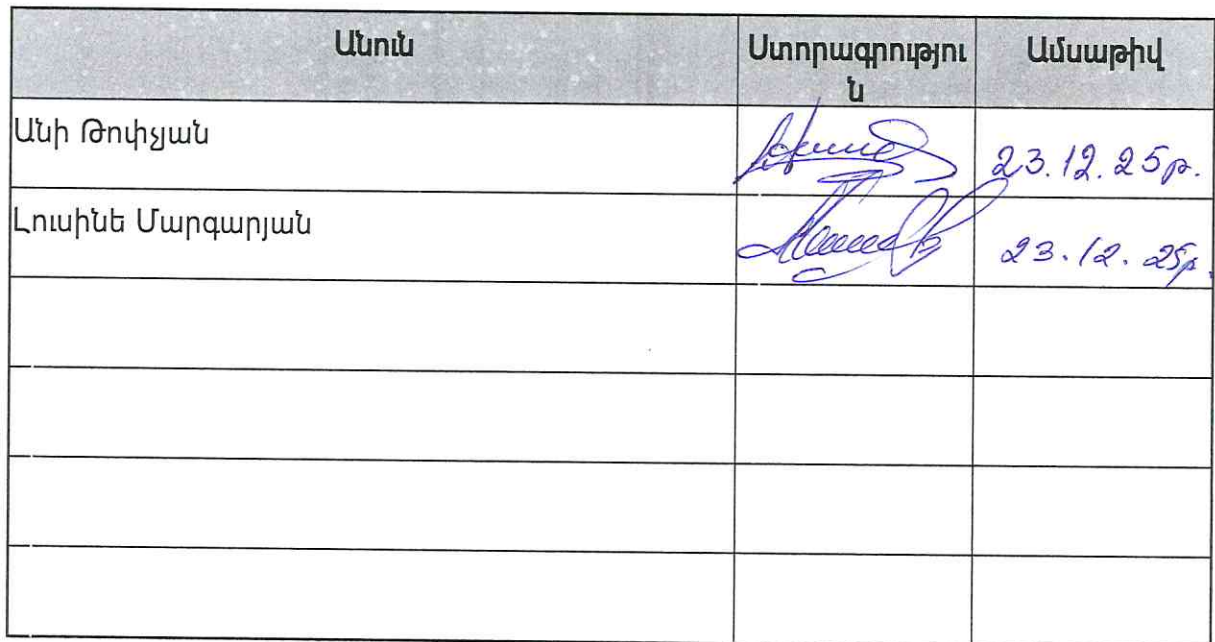 Անուն Ստորագրությու Ամսաթիվ
ն
Անի Թոփչյան 23.12.25թ.
Լուսինե Մարգարյան 23.12.25թ.